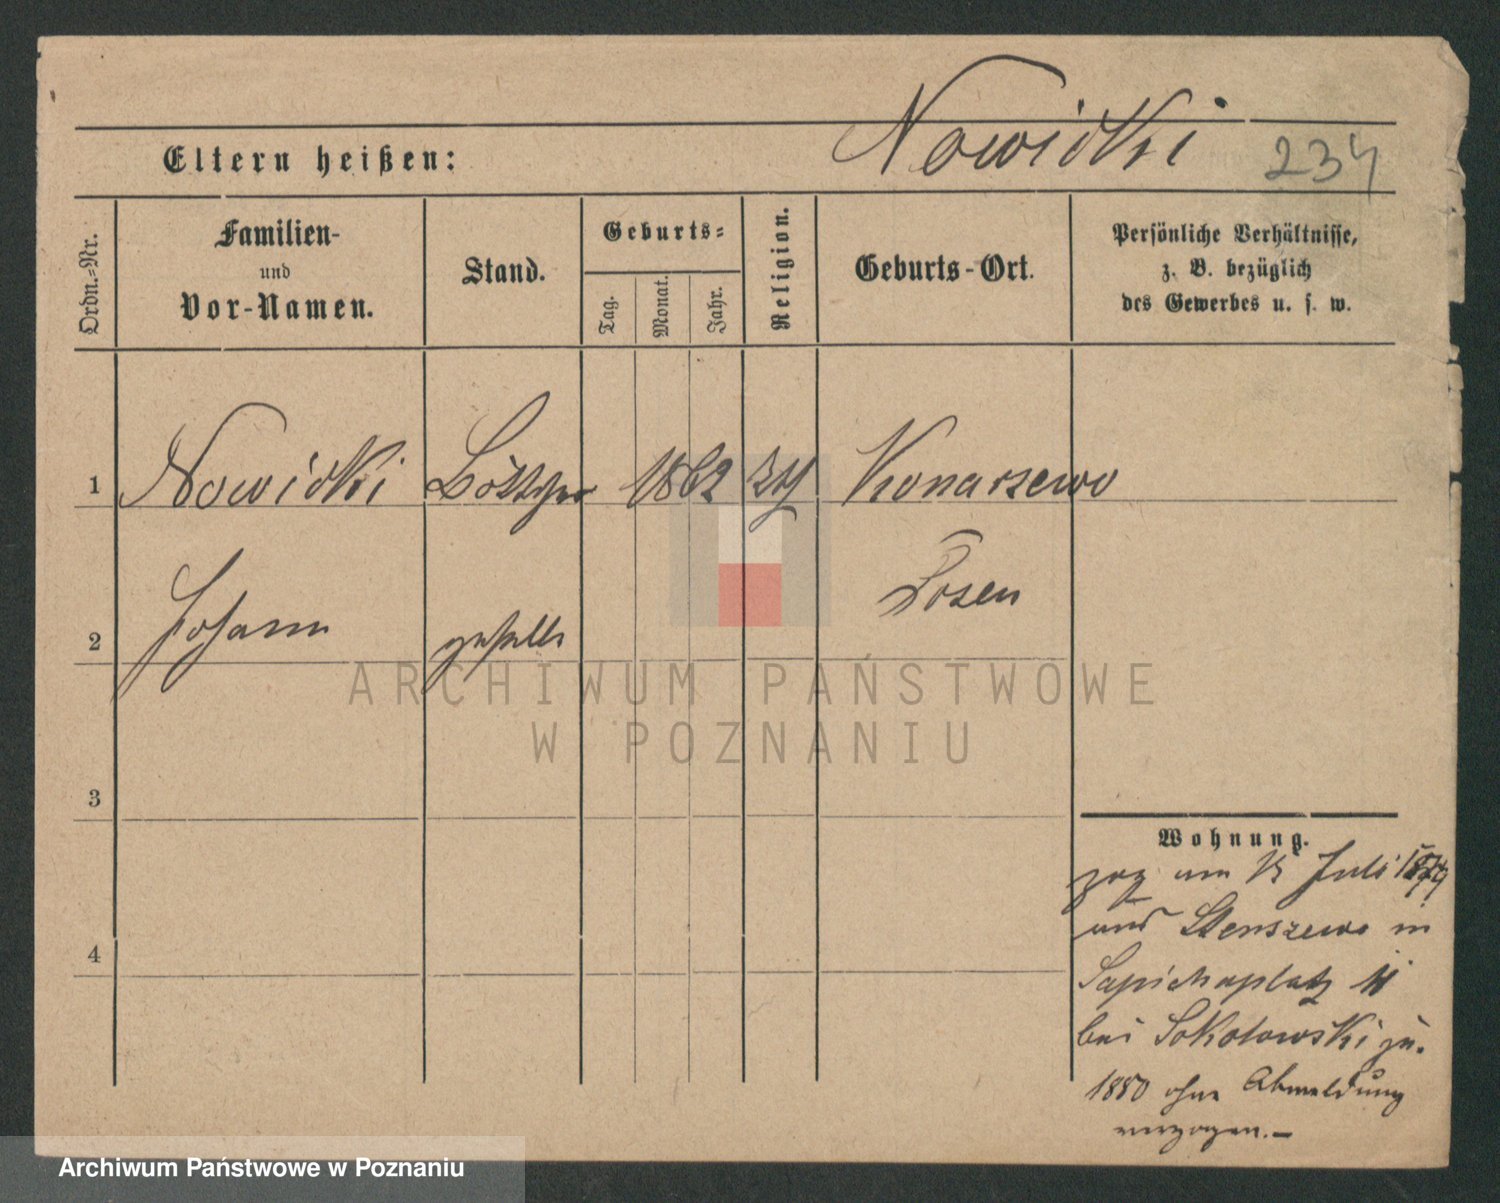 Nowicki 234
Eltern heißen:
Ordn.-Nr.
Familien-
und
Vor-Namen.
Stand.
Geburts-
Tag.
Monat.
Jahr.
Religion.
Geburts-Ort.
Persönliche Verhältnisse,
z. B. bezüglich
des Gewerbes u. s. w.
1 Nowicki Böttcher 1862 Konarzewo
2 Johann geselle Posen
3
4
Wohnung.
zog am 15 Juli 1879
und Stenszewo in
Sapiehaplatz 11
bei Sokolowski zu.
1880 ohne Abmeldung
verzogen.—
ARCHIWUM PAŃSTWOWE
W POZNANIU
Archiwum Państwowe w Poznaniu